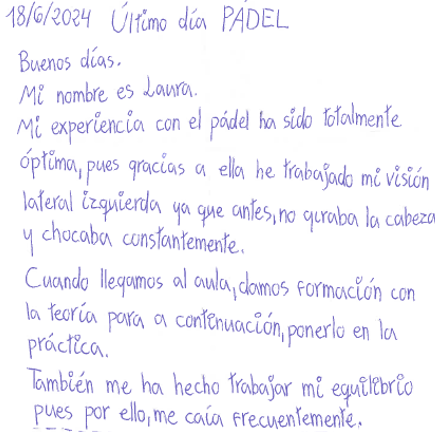 18/6/2024 Último día PÁDEL
Buenos días.
Mi nombre es Laura.
Mi experiencia con el pádel ha sido totalmente
óptima, pues gracias a ella he trabajado mi visión
lateral izquierda ya que antes, no giraba la cabeza
y chocaba constantemente.
Cuando llegamos al aula, damos formación con
la teoría para a continuación, ponerlo en la
práctica.
También me ha hecho trabajar mi equilibrio
pues por ello, me caía frecuentemente.